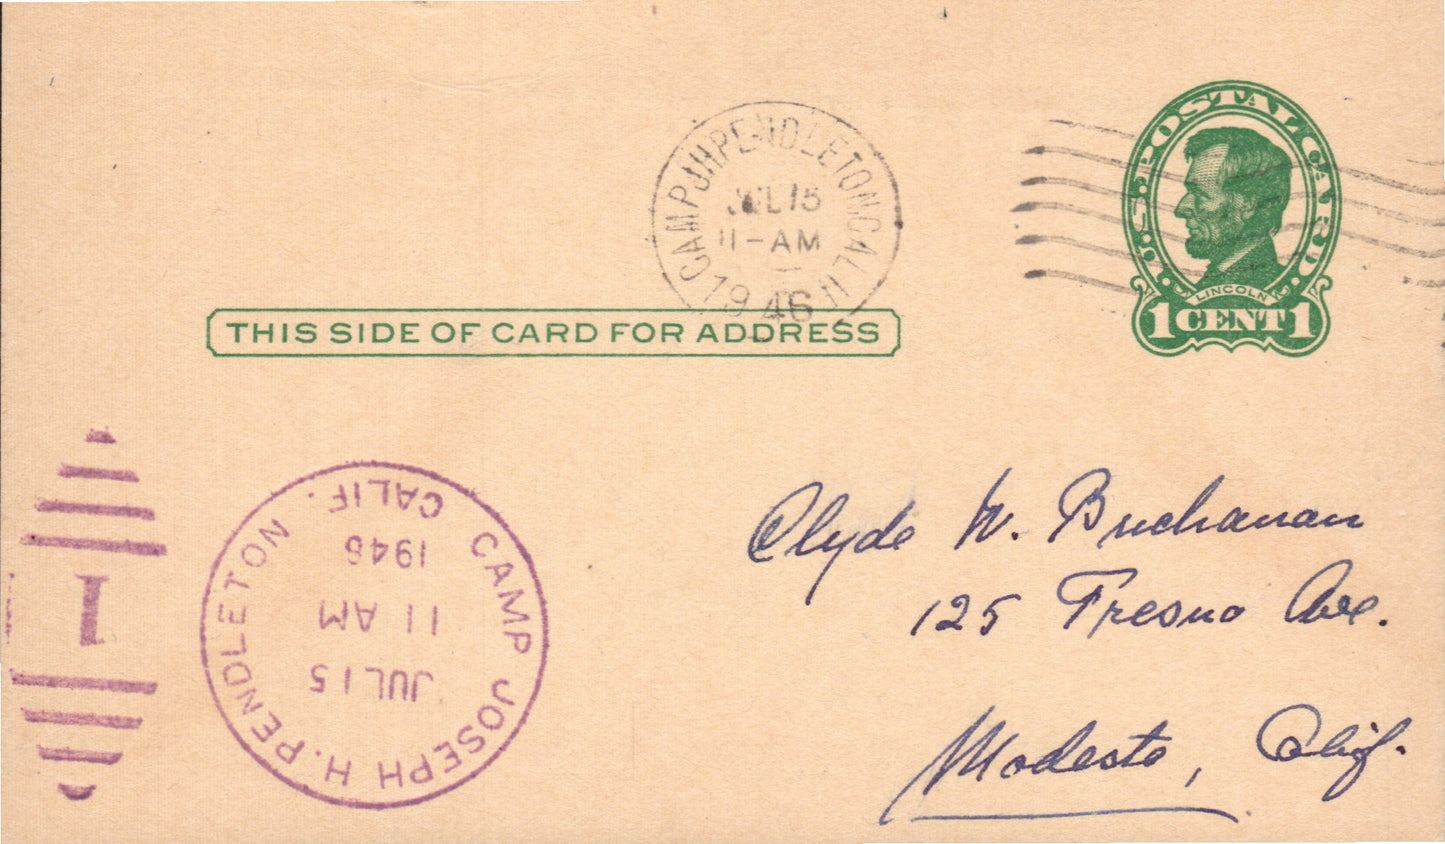 CAMP J H PENDLETON, CALIF
JUL 15
11-AM
1946
U.S. POSTAL CARD
LINCOLN
1 CENT 1
THIS SIDE OF CARD FOR ADDRESS
Clyde W. Buchanan
125 Fresno Ave.
Modesto, Calif.
CAMP JOSEPH H. PENDLETON
CALIF.
JUL 15
11 AM
1946
1